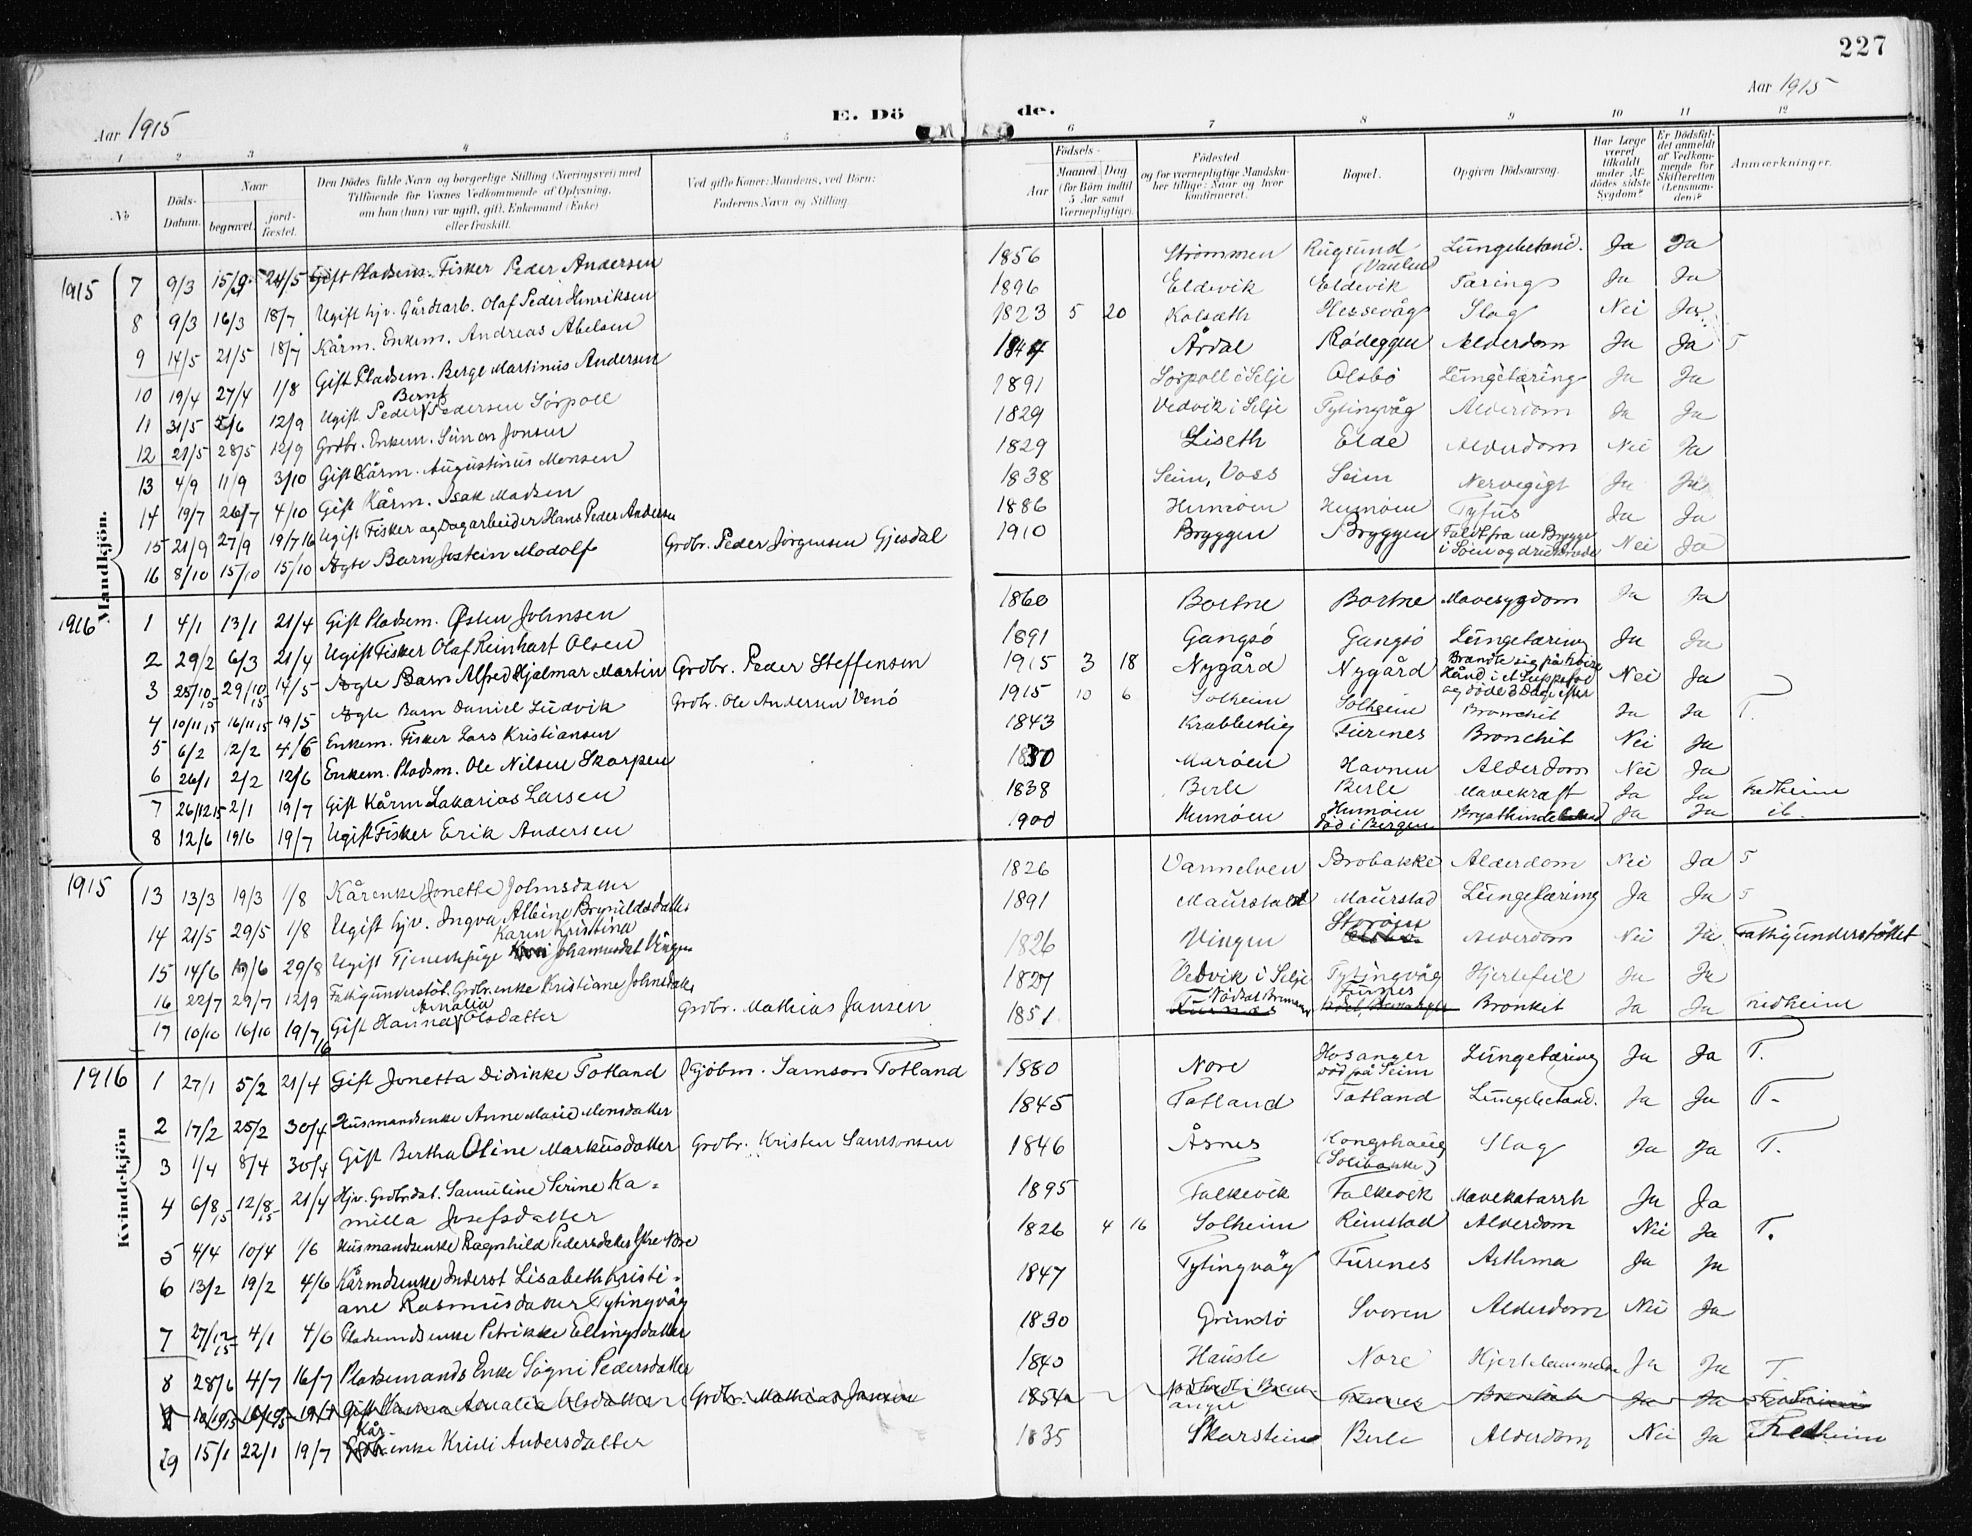 227
Aar 1915
E. Dö
de.
Aar 1915
1 2 3 4 5 6 7 8 9 10 11 12
No
Döds-Datum.
Naar
begravet.
jord-fæstet.
Den Dödes fulde Navn og borgerlige Stilling (Næringsvei) med
Tilföiende for Voxnes Vedkommende af Oplysning,
om han (hun) var ugift, gift, Enkemand (Enke)
eller fraskilt.
Ved gifte Koner: Mandens, ved Börn:
Faderens Navn og Stilling.
Födsels-
Aar
Maaned Dag
(for Börn indtil
5 Aar samt
Værnepligtige).
Födested
og for værnepligtige Mandska-
ber tillige: Naar og hvor
konfirmeret.
Bopæl.
Opgiven Dödsaarsag.
Har Læge
været
tilkaldt
under Af-
dödes sidste
Sygdom?
Er Dödsfal-
det anmeldt
af Vedkom-
mende for
Skifteretten
(Lensman-
den)?
Anmærkninger.
Mandkjön.
1915 7 9/3 15/3 24/5 Gift Pladsm. Fisker Peder Andersen 1856 Strømmen Rugsund Lungebetænd. Ja Ja
8 9/3 16/3 18/7 Ugift hjv. Gårdarb. Olaf Peder Henriksen 1896 Eldevik Eldevik Tæring Ja Ja
9 14/5 21/5 18/7 Kårm. Enkem. Andreas Abelsen 1823 5 20 Kolsæth Hessevåg Slag Nei Ja
10 19/4 27/4 1/8 Gift Pladsem. Berge Martinus Andersen 1844 Årdal Rødeggen Alderdom Ja Ja T
11 31/5 5/6 12/9 Ugift Peder Bernt Pedersen Sörpoll 1891 Sørpoll i Selje Olsbö Lungetæring Ja Ja
12 21/5 28/5 12/9 Grdbr. Enkem. Simon Jonsen 1829 Vedvik i Selje Tytingvåg Alderdom Ja Ja
13 4/9 11/9 3/10 Gift Kårm. Augustinus Monsen 1829 Liseth Elde Alderdom Nei Ja
14 19/7 26/7 4/10 Gift Kårm. Isak Madsen 1838 Seim, Voss Seim Nervegigt Ja Ja
15 21/9 27/9 19/7 16 Ugift Fisker og Dagarbeider Hans Peder Andersen 1886 Humöen Humöen Tyfus Ja Ja
16 8/10 15/10 15/10 Ægte Barn Jostein Modolf Grdbr. Peder Jörgensen Gjesdal 1910 Bryggen Bryggen Faldt fra en Brygge
i Söen og druknede Nei Ja
1916 1 4/1 13/1 21/4 Gift Pladsm. Østen Johnsen 1860 Bortne Bortne Mavesygdom Ja Ja
2 29/2 6/3 21/4 Ugift Fisker Olaf Reinhart Olsen 1891 Gangsö Gangsö Lungetæring Ja Ja
3 25/10 15 29/10 15 14/5 Ægte Barn Alfred Hjalmar Martin Grdbr. Peder Steffensen 1915 3 18 Nygård Nygård Brændte sig på höire
Hånd i et Suppefad
og döde 3 Dage efter Nei Ja
4 10/11 15 16/11 15 19/5 Ægte Barn Daniel Ludvik Grdbr. Ole Andersen Venö 1915 10 6 Solheim Solheim Bronchit Ja Ja T.
5 6/2 12/2 4/6 Enkem. Fisker Lars Kristiansen 1843 Krabbestig Furenes Bronchit Nei Ja
6 26/1 2/2 12/6 Enkem. Pladsm. Ole Nilsen Skorpen 1830 Muröen Havnen Alderdom Nei Ja
7 26/12 15 2/1 19/7 Gift Kårm Zakarias Larsen 1838 Berle Berle Mavekræft Ja Ja Fredheim
8 12/6 19/6 19/7 Ugift Fisker Erik Andersen 1900 Humöen Humöen
död i Bergen Ja Ja ib.
Kvindekjön
1915 13 13/3 19/3 1/8 Kårenke Jonette Johnsdatter 1826 Vannelven Brobakke Alderdom Nei Ja T
14 21/5 29/5 1/8 Ugift hjv. Ingva Albine Brynildsdatter 1891 Maurstad Maurstad Lungetæring Ja Ja T
15 14/6 19/6 29/8 Ugift Tjenestpige Karen Kristina Johannesdat Vingen 1826 Vingen Storöen Alderdom Nei Ja Fattigunderstöttet
16 22/7 29/7 12/9 Fattigunderstöt. Grdbr.enke Kristiane Johnsdatter 1827 Vedvik i Selje Tytingvåg Hjertefeil Ja Ja
17 10/10 16/10 19/7 16 Gift Hanna Amalia Olsdatter Grdbr. Mathias Jansen 1851 Furnes Bronket Ja Ja Fredheim
1916 1 27/1 5/2 21/4 Gift Jonetta Didrikke Totland Gjöbm. Samson Totland 1880 Nore Hosanger
död på Seim Lungetæring Ja Ja T.
2 17/2 25/2 30/4 Husmandsenke Anne Marie Monsdatter 1845 Totland Totland Lungebetænd. Ja Ja T.
3 1/4 8/4 30/4 Gift Bertha Oline Markusdatter Grdbr. Kristen Samsonsen 1846 Åsnes Kongshaug
(Solibakke) Slag Ja Ja T.
4 6/8 15 12/8 15 21/4 Hjv. Grdbrdat. Samuline Serine Ka-
milla Josefsdatter 1895 Falkevik Falkevik Mavekatarrh Ja Ja
5 4/4 10/4 1/6 Husmandsenke Ragnhild Pedersdatter 1826 4 16 Solheim Rimstad Alderdom Nei Ja T.
6 13/2 19/2 4/6 Kårmdsenke Inderst Lisabeth Kristi-
ane Rasmusdatter Tytingvåg 1847 Tytingvåg Furenes Asthma Ja Ja
7 27/12 15 4/1 4/6 Pladsmdsenke Petrikke Ellingsdatter 1830 Grindö Svoren Alderdom Nei Ja
8 28/6 4/7 16/7 Pladsemands Enke Signi Pedersdatter 1840 Hausle Nore Ja Ja T.
Gift Hanna Amalia Olsdatter Grdbr. Mathias Jansen 1854 Furnes Bronket Ja Ja
9 15/1 22/1 19/7 Kårenke Kristi Andersdatter 1835 Skarstein Berle Alderdom Nei Ja Fredheim